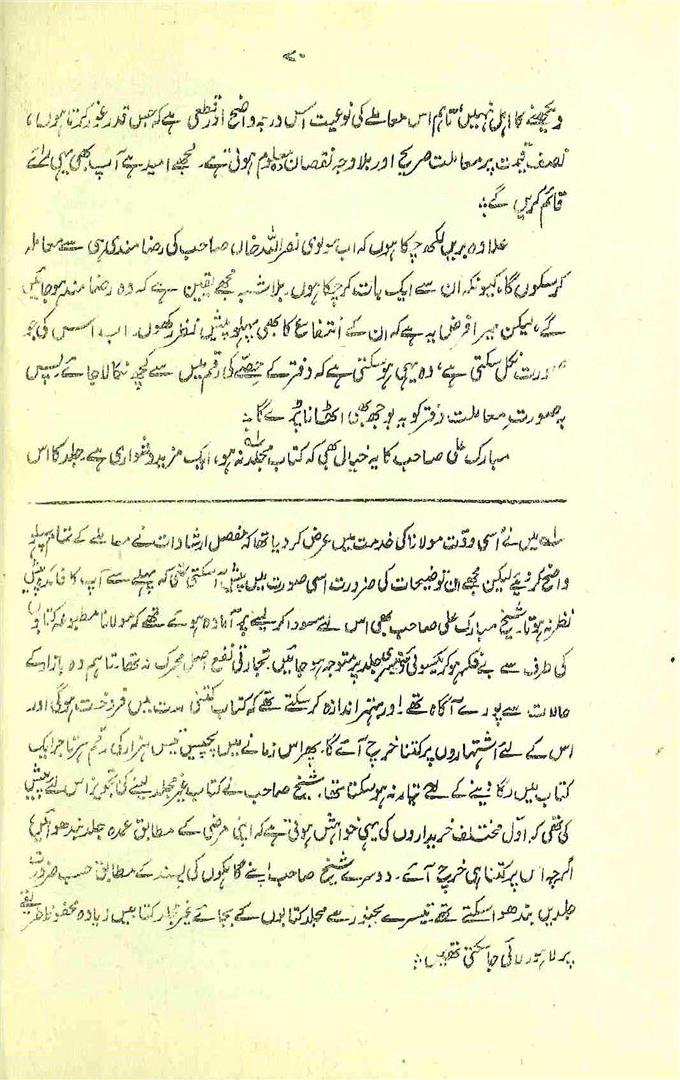 ۷۰
دیکھنے کا اہل نہیں، تاہم اس معاملے کی نوعیت اس درجہ واضح اور قطعی ہے کہ جس قدر غور کرتا ہوں،
نصف قیمت پر معاملت صریح اور بلا وجہ نقصان دہ معلوم ہوتی ہے۔ مجھے امید ہے آپ بھی یہی رائے
قائم کریں گے۔
علاوہ بریں لکھ چکا ہوں کہ اب مولوی نصر اللہ خاں صاحب کی رضا مندی ہی سے معاملہ
کر سکوں گا، کیونکہ ان سے ایک بات کر چکا ہوں۔ بلا شبہ مجھے یقین ہے کہ وہ رضا مند ہو جائیں
گے، لیکن میرا فرض یہ ہے کہ ان کے انتفاع کا بھی پہلو پیش نظر رکھوں۔ اب اس کی جو
صورت نکل سکتی ہے، وہ یہی ہو سکتی ہے کہ دفتر کے حصے کی رقم میں سے کچھ نکالا جائے۔ پس
بہ صورت معاملت دفتر کو یہ بوجھ بھی اٹھانا پڑے گا۔
مبارک علی صاحب کا یہ خیال بھی کہ کتاب مجلد نہ ہو، ایک مزید دشواری ہے۔ جلد کا اس
لہ میں نے اُسی وقت مولانا کی خدمت میں عرض کر دیا تھا کہ مفصل ارشادات نے معاملے کے تمام پہلو
واضح کر دیے لیکن مجھے ان توضیحات کی ضرورت اسی صورت میں پیش آ سکتی تھی کہ پہلے سے آپ کا فائدہ پیش
نظر نہ ہوتا۔ شیخ مبارک علی صاحب بھی اس لئے سودا کر لینے پر آمادہ ہوئے تھے کہ مولانا مطبوعہ کتابوں
کی طرف سے بے فکر ہو کر یکسوئی تیسری جلد پر متوجہ ہو جائیں۔ تجارتی نفع اصل محرک نہ تھا۔ تاہم وہ بازار کے
حالات سے پورے آگاہ تھے اور بہتر اندازہ کر سکتے تھے کہ کتاب کتنی مدت میں فروخت ہوگی اور
اس کے لئے اشتہاروں پر کتنا خرچ آئے گا۔ پھر اس زمانے میں پچیس تیس ہزار کی رقم ہر تاجر ایک
کتاب میں لگا دینے کے لئے تیار نہ ہو سکتا تھا۔ شیخ صاحب نے کتاب غیر مجلد لینے کی تجویز اس لئے پیش
کی تھی کہ اول مختلف خریداروں کی یہی خواہش ہوتی ہے کہ اپنی مرضی کے مطابق عمدہ جلد بندھوائیں
اگرچہ اس پر کتنا ہی خرچ آئے۔ دوسرے شیخ صاحب اپنے گاہکوں کی پسند کے مطابق حسب ضرورت
جلدیں بندھوا سکتے تھے تیسرے بجنور سے مجلد کتابوں کے بجائے غیر مجلد کتابیں زیادہ محفوظ طریقے
پر لاہور لائی جا سکتی تھیں۔